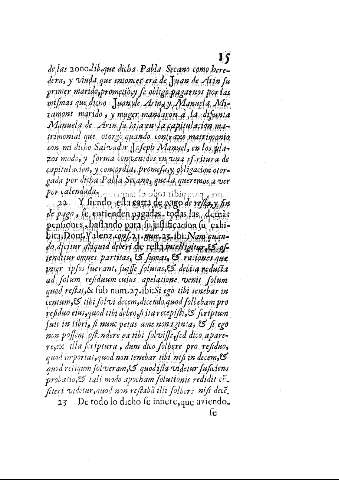 15
de las 2000. lib. que dicha Pabla Secano como here-
dera, y viuda que entonces era de Juan de Arin su
primer marido, prometiò, y se obligò pagarnos por las
mismas que dicho Juan de Arin, y Manuela Mi-
ramont marido, y muger mandaron a la difunta
Manuela de Arin su hija en la capitulacion ma-
trimonial que otorgò quando contraxo matrimonio
con mi dicho Salvador Joseph Manuel, en los pla-
zos modo, y forma contenidos en una escritura de
capitulacion, y concordia, promesa, y obligacion otor-
gada por dicha Pabla Secano, que la queremos aver
por calendada.
22 Y siendo esta carta de pago de resta, y fin
de pago, se entienden pagadas todas las demàs
pensiones, bastando para su justificacion su
bira. Dom. Valenz. cons. 21. num. 23. ibi. Nam quan-
do dicitur aliquid debere de resta
tenditur omnes partitas, & sumas, & rationes que
super ipsos fuerant, fuisse solutas, & debita reducta
ad solum residuum cujus apelatione venit solum
quod restat, & sub num. 27. ibi: Si ego tibi tenebar in
centum, & tibi solvi decem, dicendo quod sollebam pro
residuo eius, quod tibi debeo, & ita recepisti, & scriptum
fuit in libri, si nunc petas ame nonaginta, & si ego
non possem ostendere ea tibi solvisse, sed dico, apare-
re, ex illa scriptura, dum dico solbere pro residuo,
quod importat, quod non tenebar tibi nisi in decem, &
quod reliquum solveram, & quod ista videtur sufficiens
probatio, & tali modo apocham solutionis reddidit
siteri videtur, quod non restabà illi solbere nisi decem.
23 De todo lo dicho se infiere, que aviendo
se